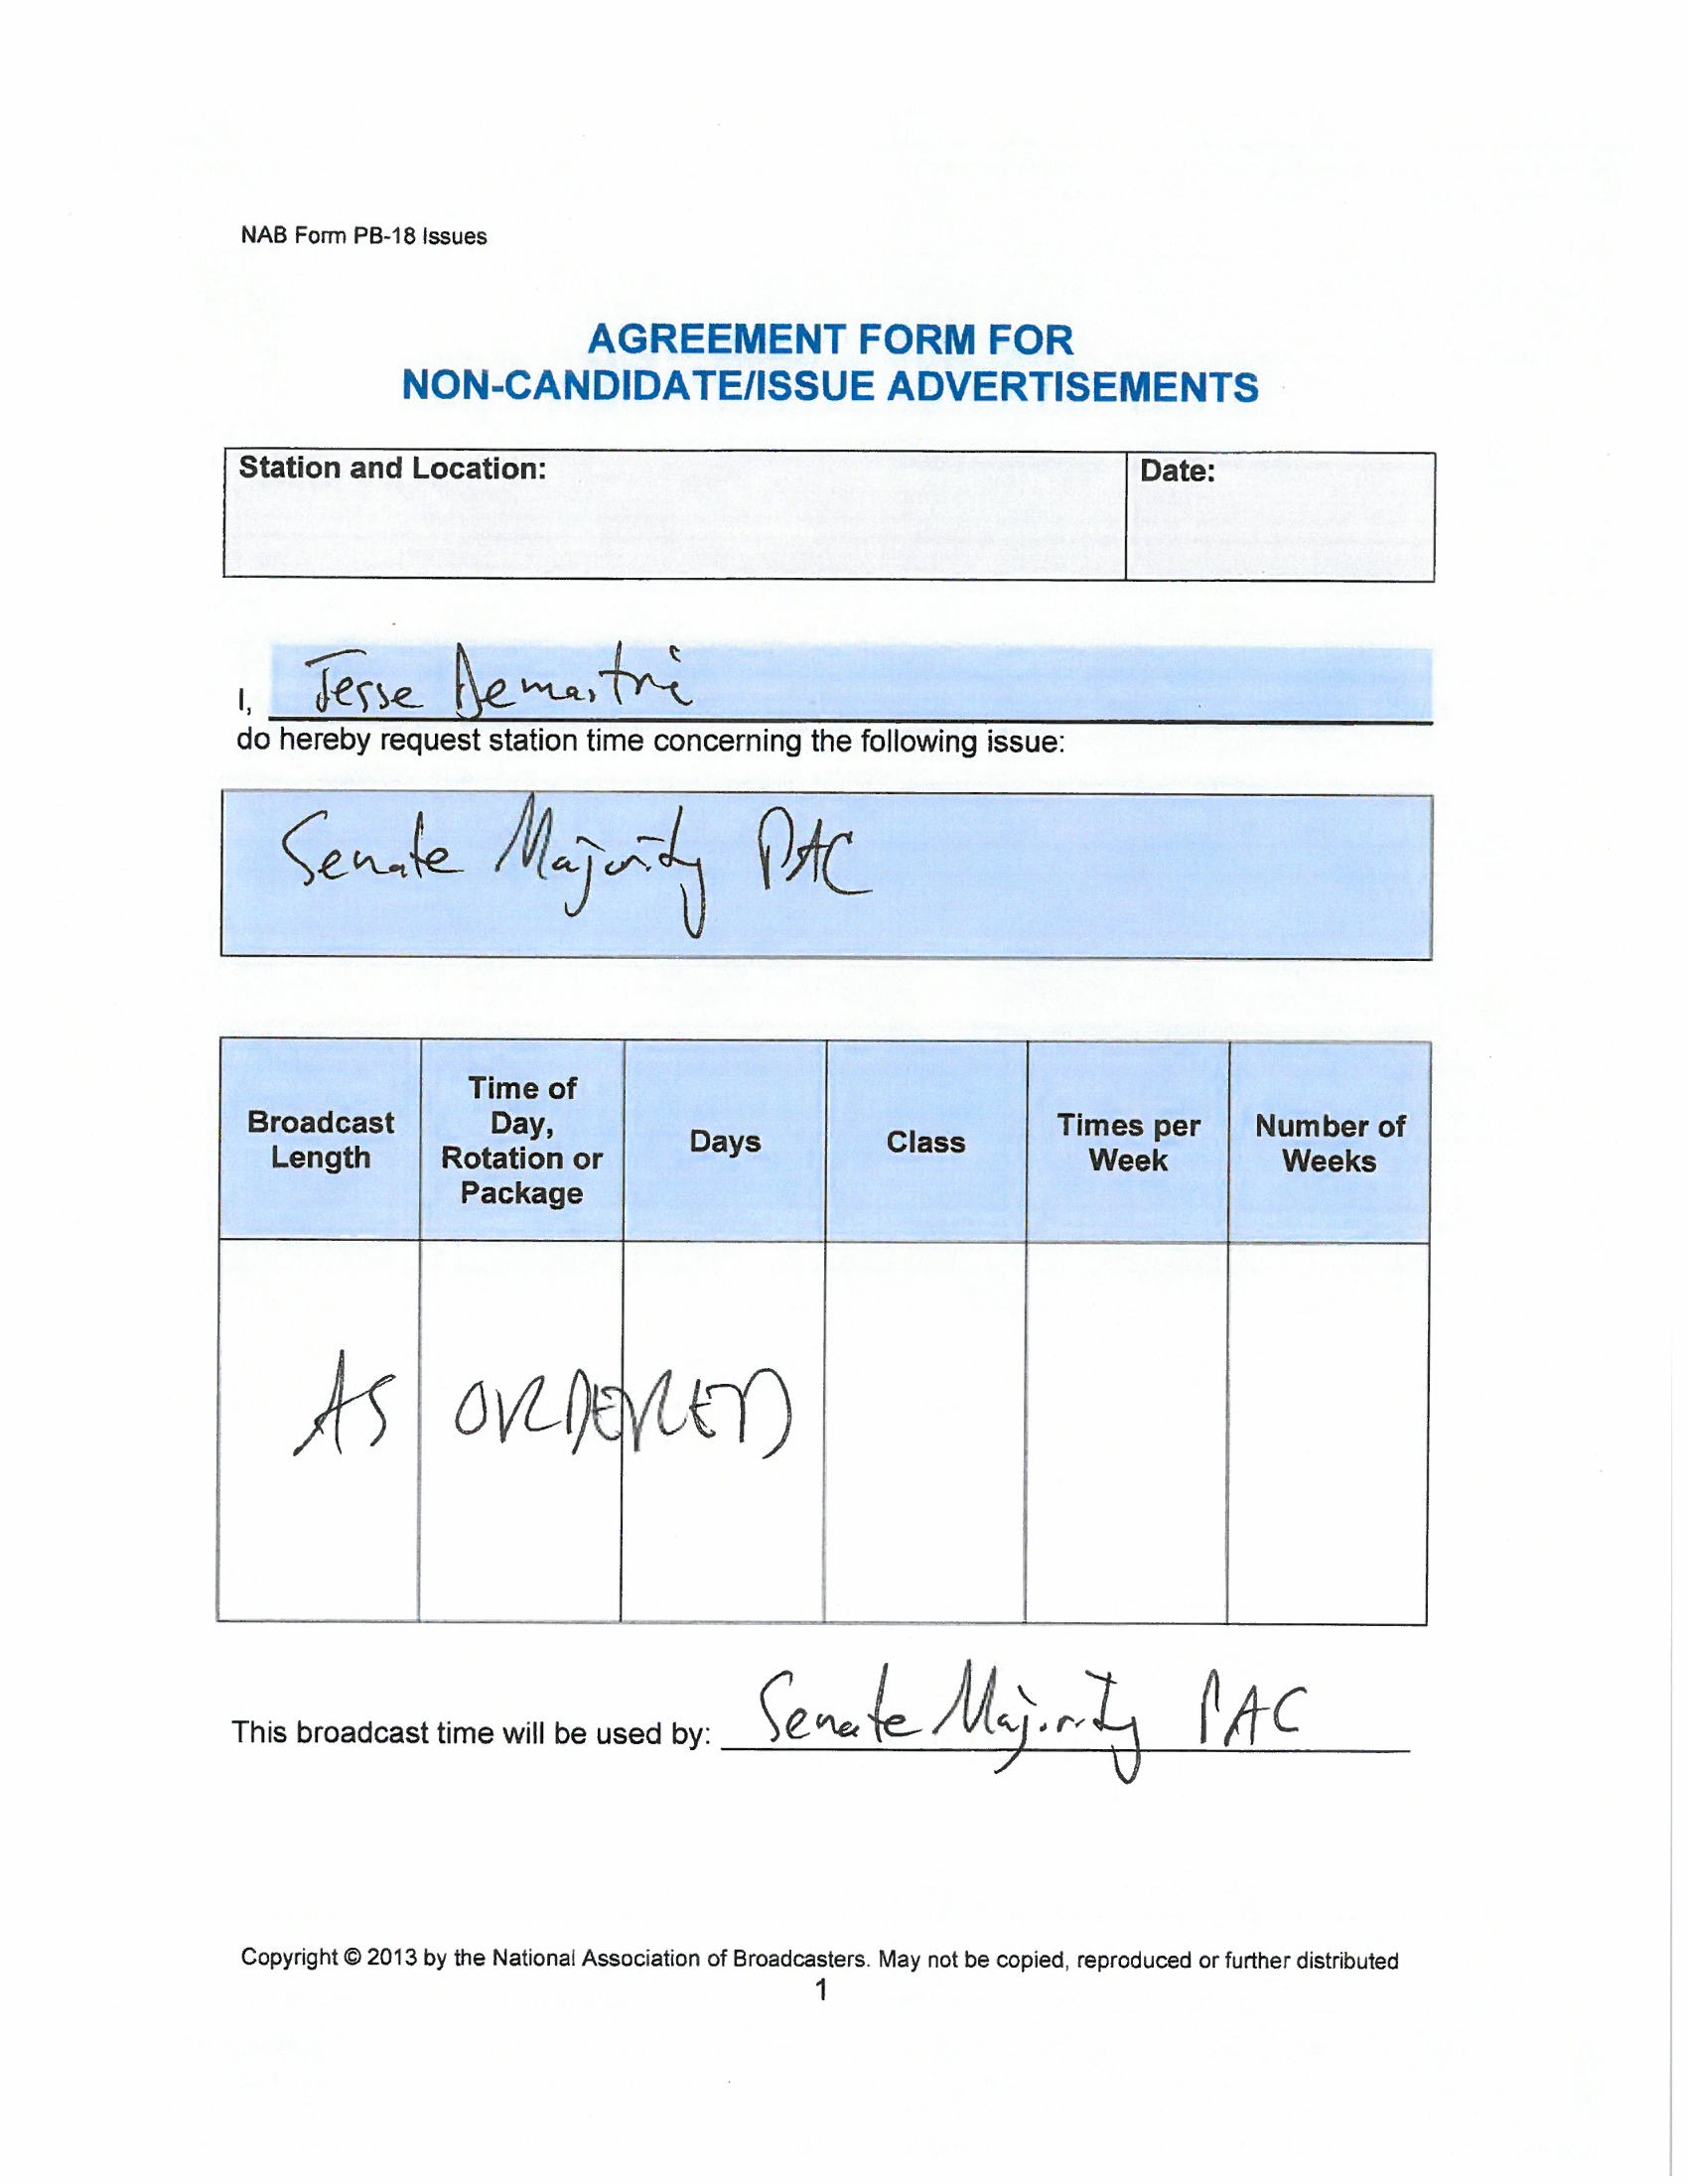 NAB Form PB-18 Issues
AGREEMENT FORM FOR
NON-CANDIDATE/ISSUE ADVERTISEMENTS
Station and Location:
Date:
I, Jesse Demastrie
do hereby request station time concerning the following issue:
Senate Majority PAC
Broadcast Length
Time of Day, Rotation or Package
Days
Class
Times per Week
Number of Weeks
AS ORDERED
This broadcast time will be used by: Senate Majority PAC
Copyright © 2013 by the National Association of Broadcasters. May not be copied, reproduced or further distributed
1